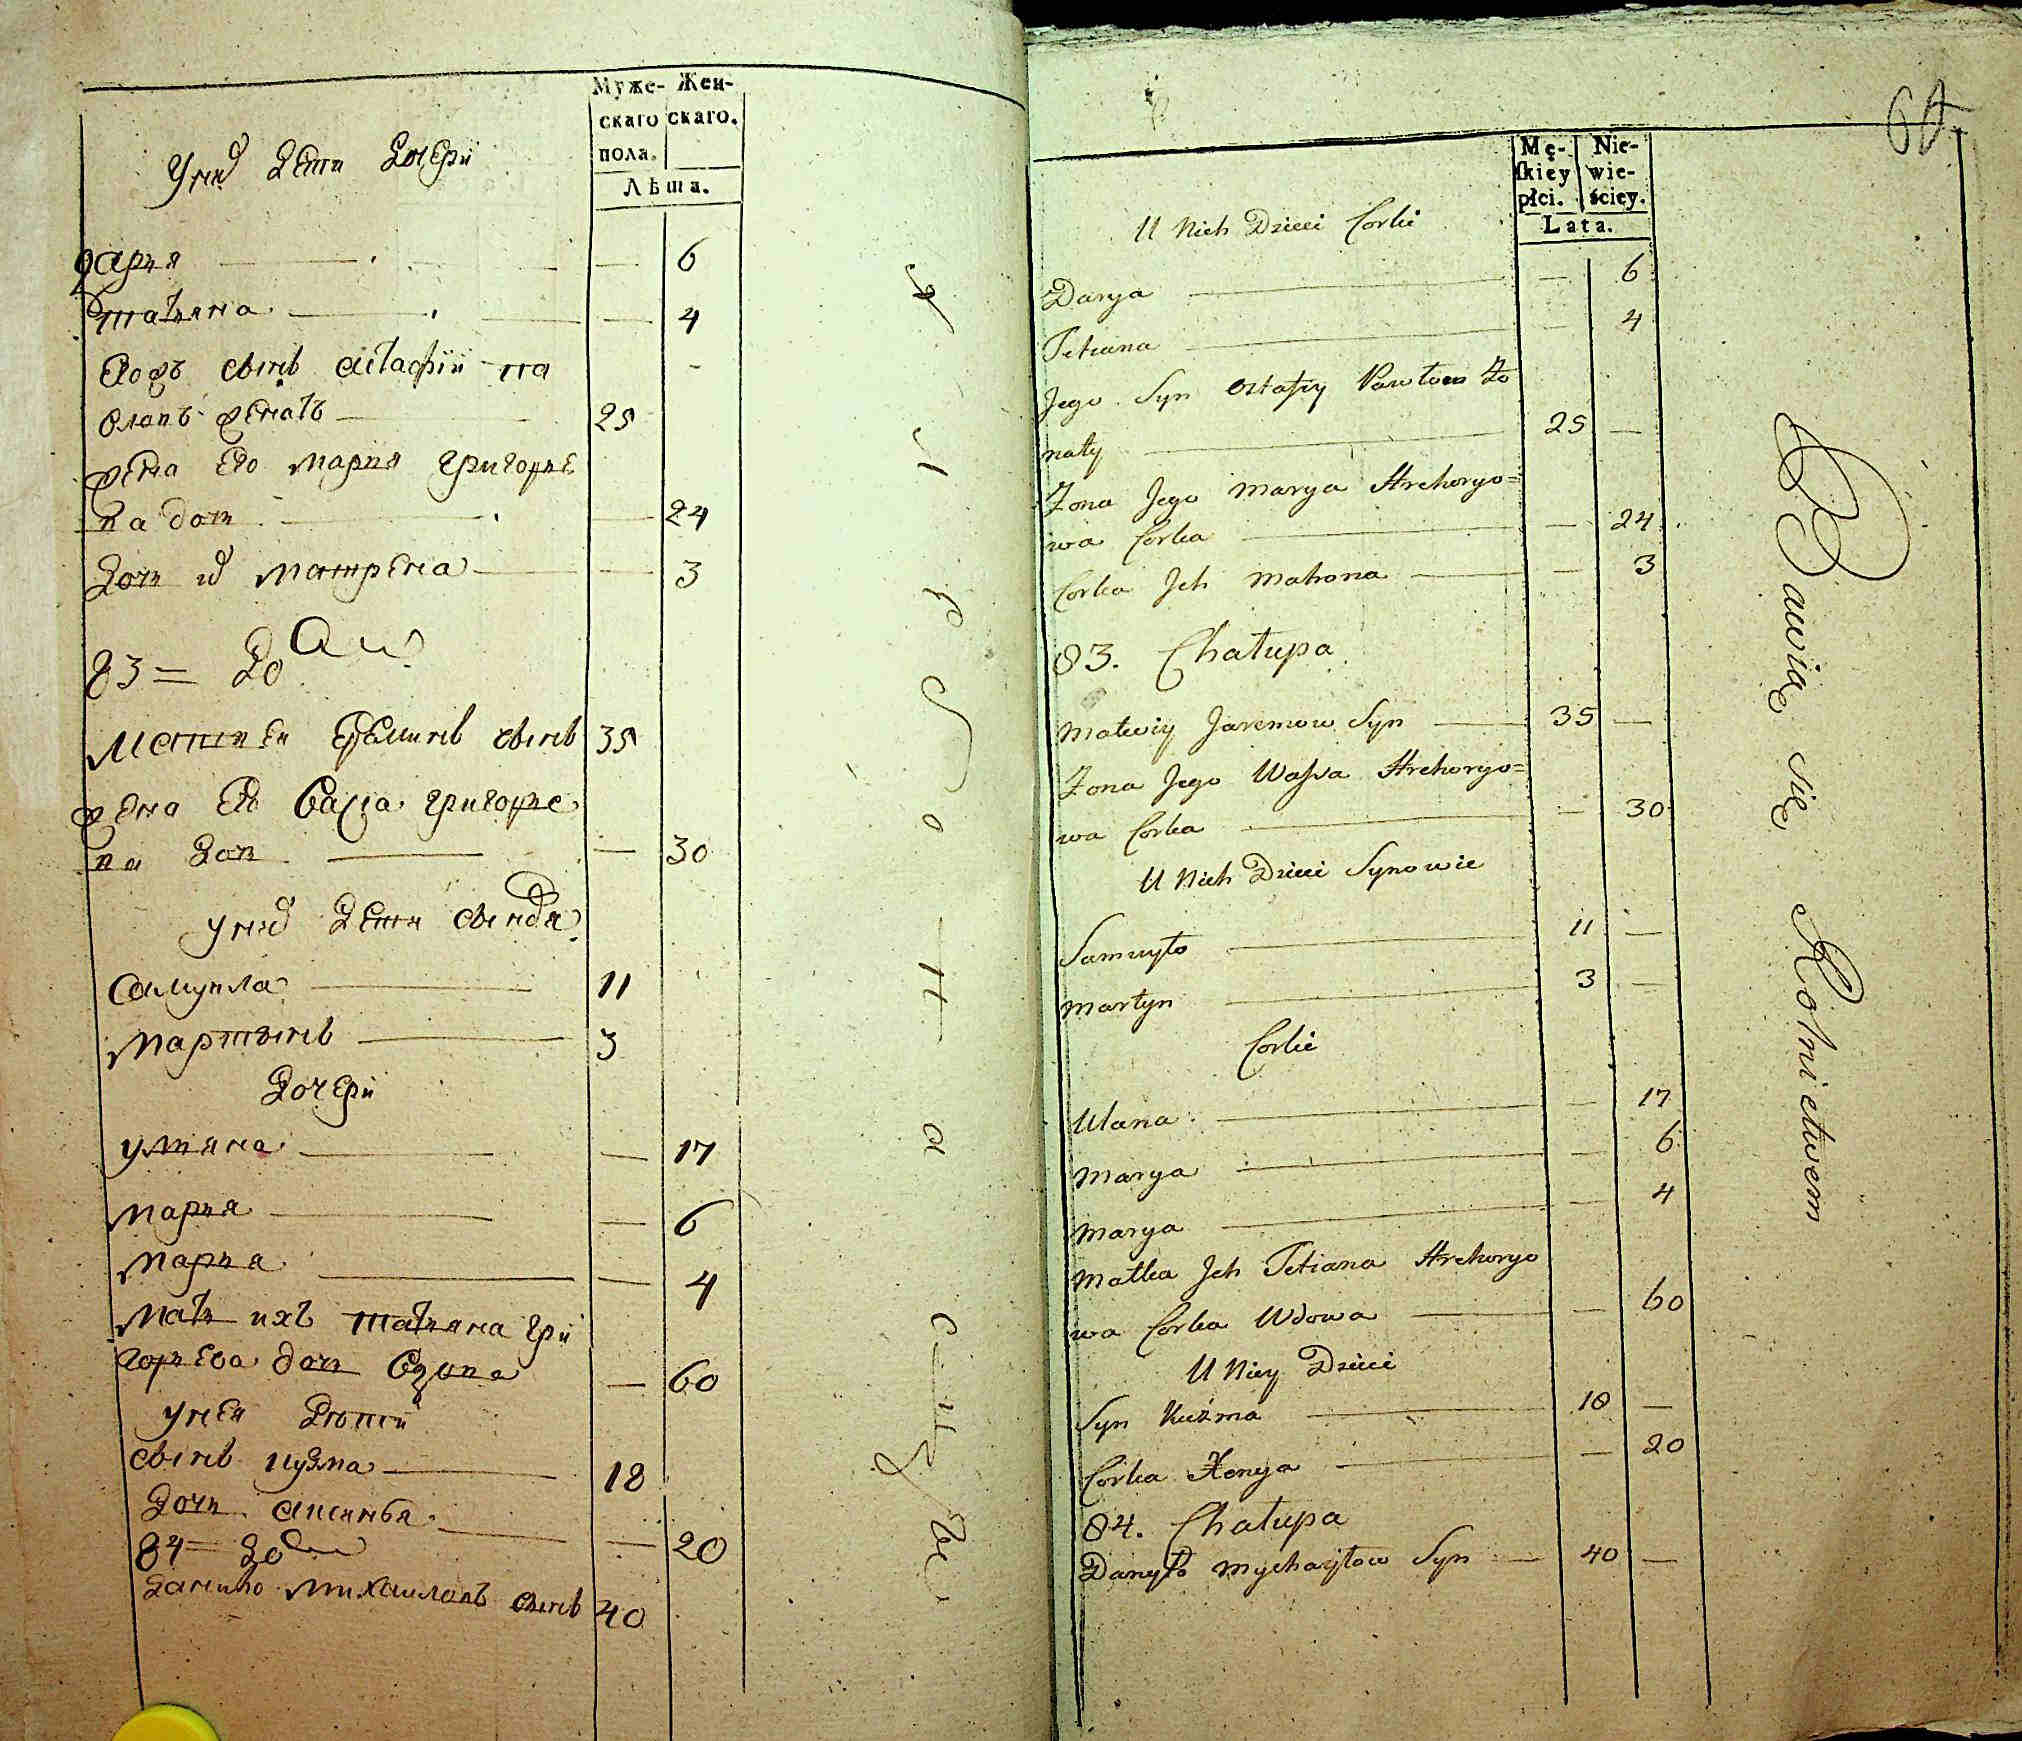 Муже- Жен-
скаго скаго.
пола.
Лѣта.
Униⷯ Дети Дочери
Дарья — — 6
татьяна — — 4
Евоⷢ сынъ Астафiй па
вловъ женатъ — 25
жена Его Мария григорье
ва доч — — 24
Дочь иⷯ Матрена — — 3
83 = До
Матвеи Еремин сынъ 35
жена Его Васса григорье
ва Доч — — 30
Униⷯ Дети сыновя
Самуила — 11
Мартынъ — 3
Дочери
Уляна — — 17
Мария — — 6
Мария — — 4
Мать ихъ татьяна Гри
горьева дочь Вдова — 60
Унеи Дѣти
сынъ Кузма — 18
Дочь Аксинья — — 20
84 =
Данило Михаиловъ сынъ 40
60
Mę- Nie-
skiey wie-
płci. ściey.
Lata.
U Nich Dzieci Corki
Darya — — 6
Tetiana — — 4
Jego Syn Ostafiy Pawłow Żo
naty — 25 —
Żona Jego Marya Hrehoryo=
wa Corka — — 24
Corka Jch Matrona — — 3
83. Chałupa
Matwiy Jaremow Syn — 35 —
Żona Jego Wassa Hrehoryo=
wa Corka — — 30
U Nich Dzieci Synowie
Samuyło — 11 —
Martyn — 3 —
Corki
Ulana — — 17
Marya — — 6
Marya — — 4
Matka Jch Tetiana Hrehoryo
wa Corka Wdowa — — 60
U Niey Dzieci
Syn Kuźma — 18 —
Corka Xenya — — 20
84. Chałupa
Danyło Mychayłow Syn — 40 —
Bawią się Rolnictwem